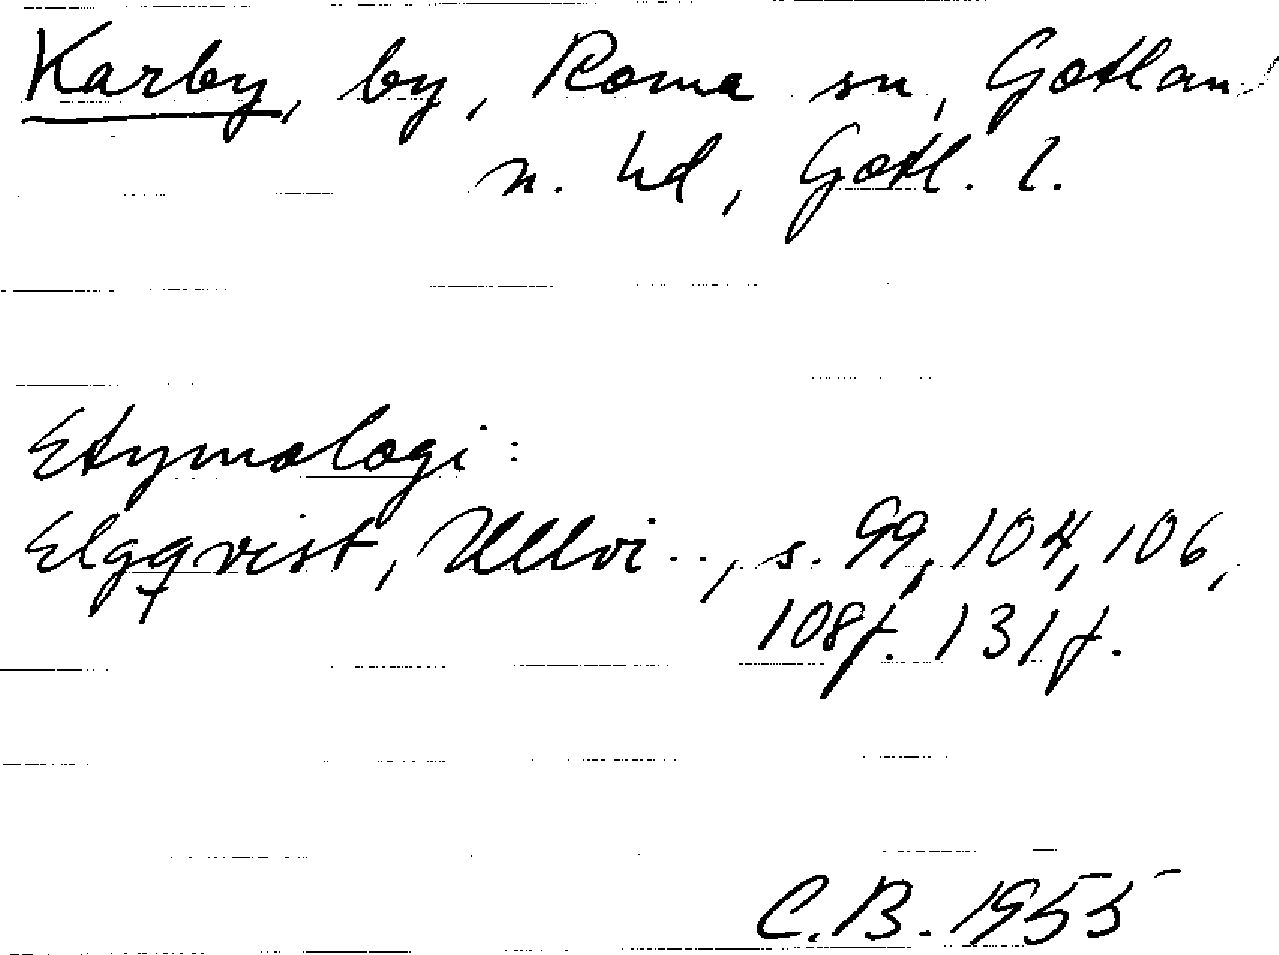 Karby, by, Roma sn, Gotland
n. hd, Gotl. l.
Etymologi:
Elgqvist, Ullvi.., s. 99, 104, 106,
108f. 131f.
C.B. 1955